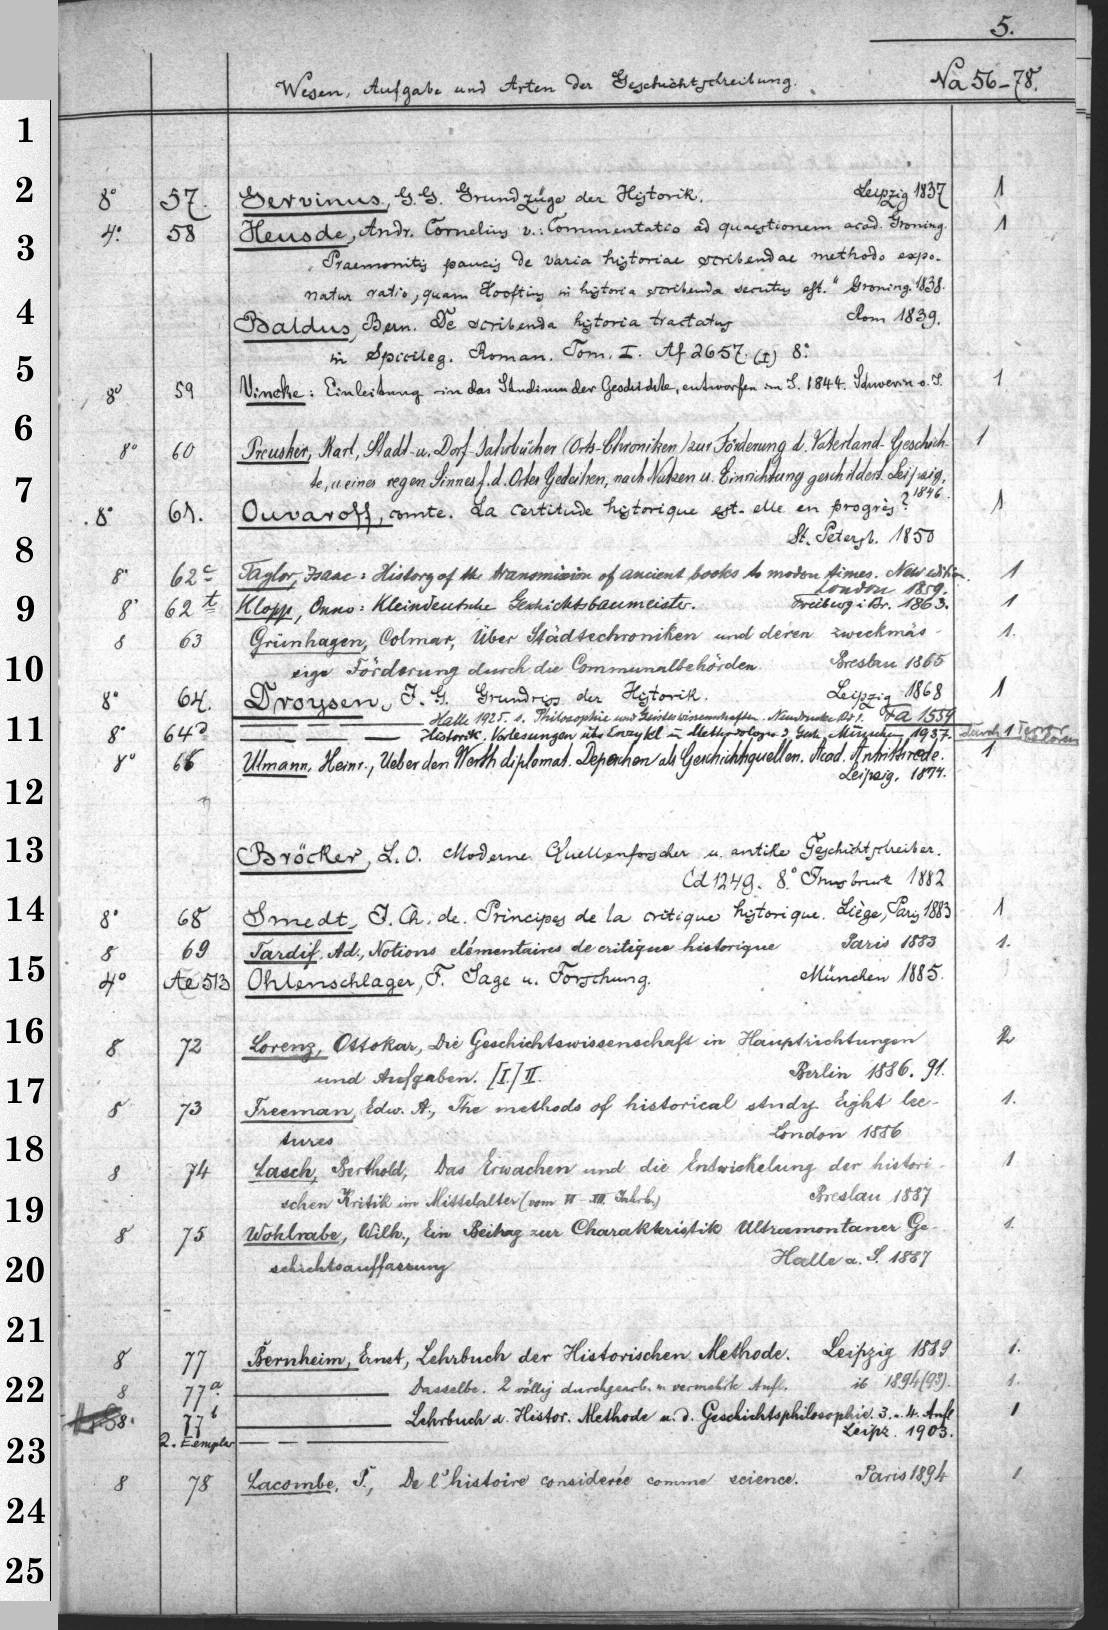 5.
Wesen, Aufgabe und Arten der Geschichtschreibung. Na 56-78.
1
2
3
4
5
6
7
8
9
10
11
12
13
14
15
16
17
18
19
20
21
22
23
24
25
8° 57. Gervinus, G. G. Grundzüge der Historik. Leipzig 1837 1
4° 58 Heusde, Andr. Cornelius v.: Commentatio ad quaestionem acad. Groning. 1
„Praemonitis paucis de varia historiae scribendae methodo expo-
natur ratio, quam Hooftius in historia scribenda secutus est." Groning. 1838.
Baldus, Bern. De scribenda historia tractatus Rom 1839.
in Spicileg. Roman. Tom. I. Af 2657. (I) 8°
8° 59 Vincke: Einleitung in das Studium der Geschichte, entworfen im S. 1844. Schwerin a. S. 1
8° 60 Preusker, Karl, Stadt- u. Dorf-Jahrbücher (Orts-Chroniken) zur Förderung d. Vaterland-Geschich- 1
te, u. eines regen Sinnes f. d. Ortes Gedeihen, nach Nutzen u. Einrichtung geschildert. Leipzig,
1846.
8° 61. Ouvaroff, comte. La certitude historique est-elle en progrès? 1
St. Petersb. 1850
8° 62c Taylor, Isaac: History of the transmission of ancient books to modern times. New edition. 1
London 1859.
8° 62t Klopp, Onno: Kleindeutsche Geschichtsbaumeister. Freiburg i. Br. 1863. 1
8 63 Grünhagen, Colmar, Über Städtechroniken und deren zweckmäs- 1.
sige Förderung durch die Communalbehörden Breslau 1865
8° 64. Droysen, J. G. Grundriss der Historik. Leipzig 1868 1
— — — Halle 1925. s. Philosophie und Geisteswissenschaften. Neudrucke Bd 1. Fa 1559
8° 64d — — — Historik. Vorlesungen über Enzykl. u. Methodologie d. Gesch. München 1937. durch 1
8° 66 Ulmann, Heinr., Ueber den Werth diplomat. Depeschen als Geschichtsquellen. Acad. Antrittsrede. 1
Leipzig, 1874.
Bröcker, L. O. Moderne Quellenforscher u. antike Geschichtschreiber.
Cd 1249. 8° Innsbruck 1882
8° 68 Smedt, J. Ch. de. Principes de la critique historique. Liège, Paris 1883 1
8 69 Tardif, Ad., Notions élémentaires de critique historique Paris 1883 1.
4° Ae 513 Ohlenschlager, F. Sage u. Forschung. München 1885.
8 72 Lorenz, Ottokar, Die Geschichtswissenschaft in Hauptrichtungen 2
und Aufgaben. [I.] II. Berlin 1886. 91.
8 73 Freeman, Edw. A., The methods of historical study. Eight lec- 1.
tures London 1886
8 74 Lasch, Berthold, Das Erwachen und die Entwickelung der histori- 1
schen Kritik im Mittelalter (vom VI-XII. Jahrh.) Breslau 1887
8 75 Wohlrabe, Wilh., Ein Beitrag zur Charakteristik Ultramontaner Ge- 1.
schichtsauffassung Halle a. S. 1887
8 77 Bernheim, Ernst, Lehrbuch der Historischen Methode. Leipzig 1889 1.
8 77a ——— Dasselbe. 2 völlig durchgearb. u. vermehrte Aufl. ib 1894 (93). 1.
8° 77b ——— Lehrbuch d. Histor. Methode u. d. Geschichtsphilosophie. 3. u. 4. Aufl 1
Leipz. 1903.
2. Exemplar — — ———
8 78 Lacombe, P., De l'histoire considerée comme science. Paris 1894 1